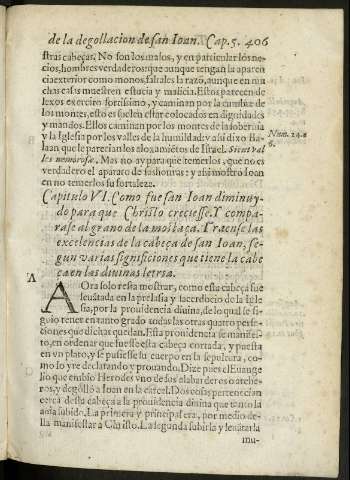 de la degollacion de san Ioan. Cap. 5. 406
stras cabeças. No son los malos, y en particular los ne-
cios, hombres verdaderos: que aunque tengan la aparen
cia exterior como monos, faltales la razó, aunque en mu
chas casas muestren estucia y malicia. Estos parecen de
lexos exercito fortissimo, y caminan por la cumbre de
los montes, esto es suelen estar colocados en dignidades
y mandos. Ellos caminan por los montes de la soberuia
y la Iglesia por los valles de la humildad: y asi dixo Ba-
laan que le parecian los aloxamiétos de Israel. Sicut val
les nemorosæ. Mas no ay para que temerlos, que no es
verdadero el aparato de sus honras: y asi mostro Ioan
en no temerlos su fortaleza.
Num. 24. a
6.
Capitulo VI. Como fue san Ioan diminuy-
do para que Christo creciesse. Y compa-
rase al grano de la mostaça. Tratase las
excelencias de la cabeça de san Ioan, se-
gun varias significiones que tiene la cabe
ça en las diuinas letrsa.
A
AOra solo resta mostrar, como esta cabeça fue
leuátada en la prelasia y sacerdocio de la Igle
sia, por la prouidencia diuina, de lo qual se si-
guio tener en tanto grado todas las otras quatro perfe-
ciones que dichas quedan. Esta prouidencia se manifes-
to, en ordenar que fuesse esta cabeça cortada, y puesta
en vn plato, y se pusiesse su cuerpo en la sepultura, co-
mo lo yre declarando y prouando. Dize pues el Euange
lio que embio Herodes vno de sus alabarderos o arche-
ros, y degolló a Ioan en la carcel. Dos cosas pertenecian
cerca desta cabeça a la prouidencia diuina que tanto la
auia subido. La primera y principal era, por medio de-
lla manifestar a Christo. La segunda subirla y leuátarla
mu-